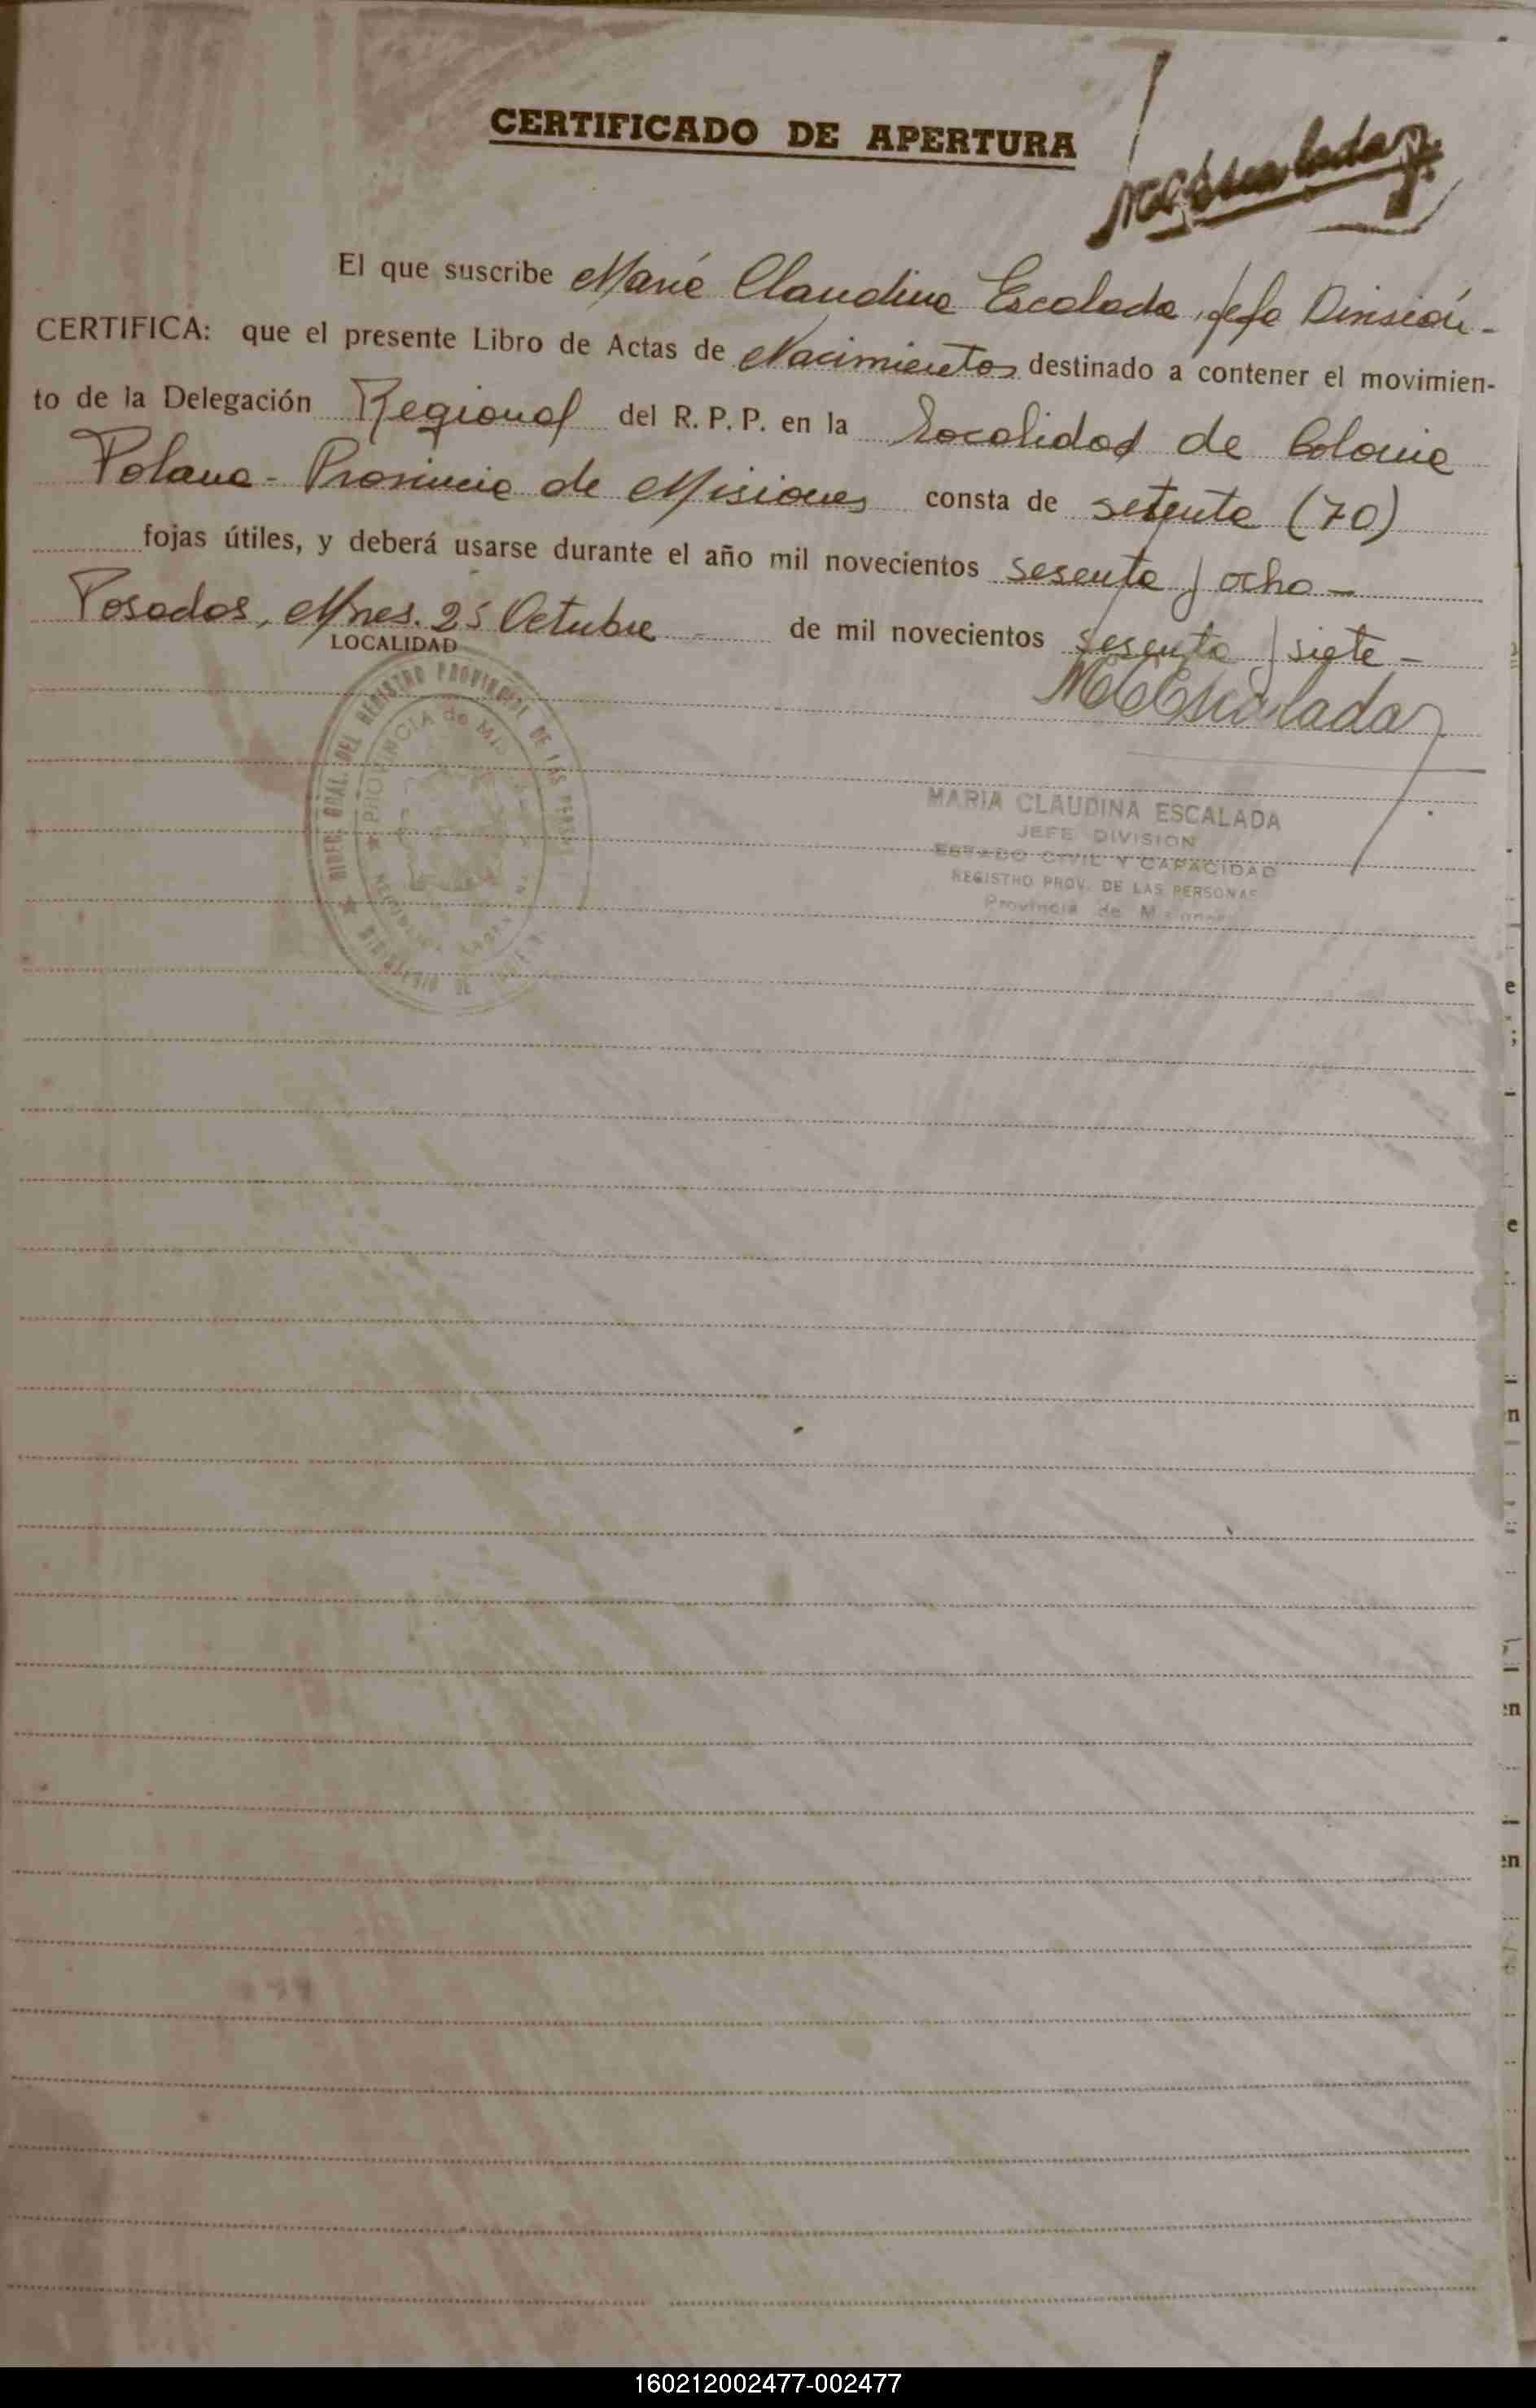 CERTIFICADO DE APERTURA
MCEscalada
El que suscribe María Claudina Escalada, Jefe División -
CERTIFICA: que el presente Libro de Actas de Nacimientos destinado a contener el movimien-
to de la Delegación Regional del R. P. P. en la Localidad de Colonia
Polana - Provincia de Misiones consta de setenta (70)
fojas útiles, y deberá usarse durante el año mil novecientos sesenta y ocho -
Posadas, Mnes. 25 Octubre - de mil novecientos sesenta y siete -
LOCALIDAD
MCEscalada
DIREC. GRAL. DEL REGISTRO PROVINCIAL DE LAS PERSONAS
PROVINCIA de MISIONES
REPUBLICA ARGENTINA
MINISTERIO DE
MARIA CLAUDINA ESCALADA
JEFE DIVISION
ESTADO CIVIL Y CAPACIDAD
REGISTRO PROV. DE LAS PERSONAS
Provincia de Misiones
160212002477-002477